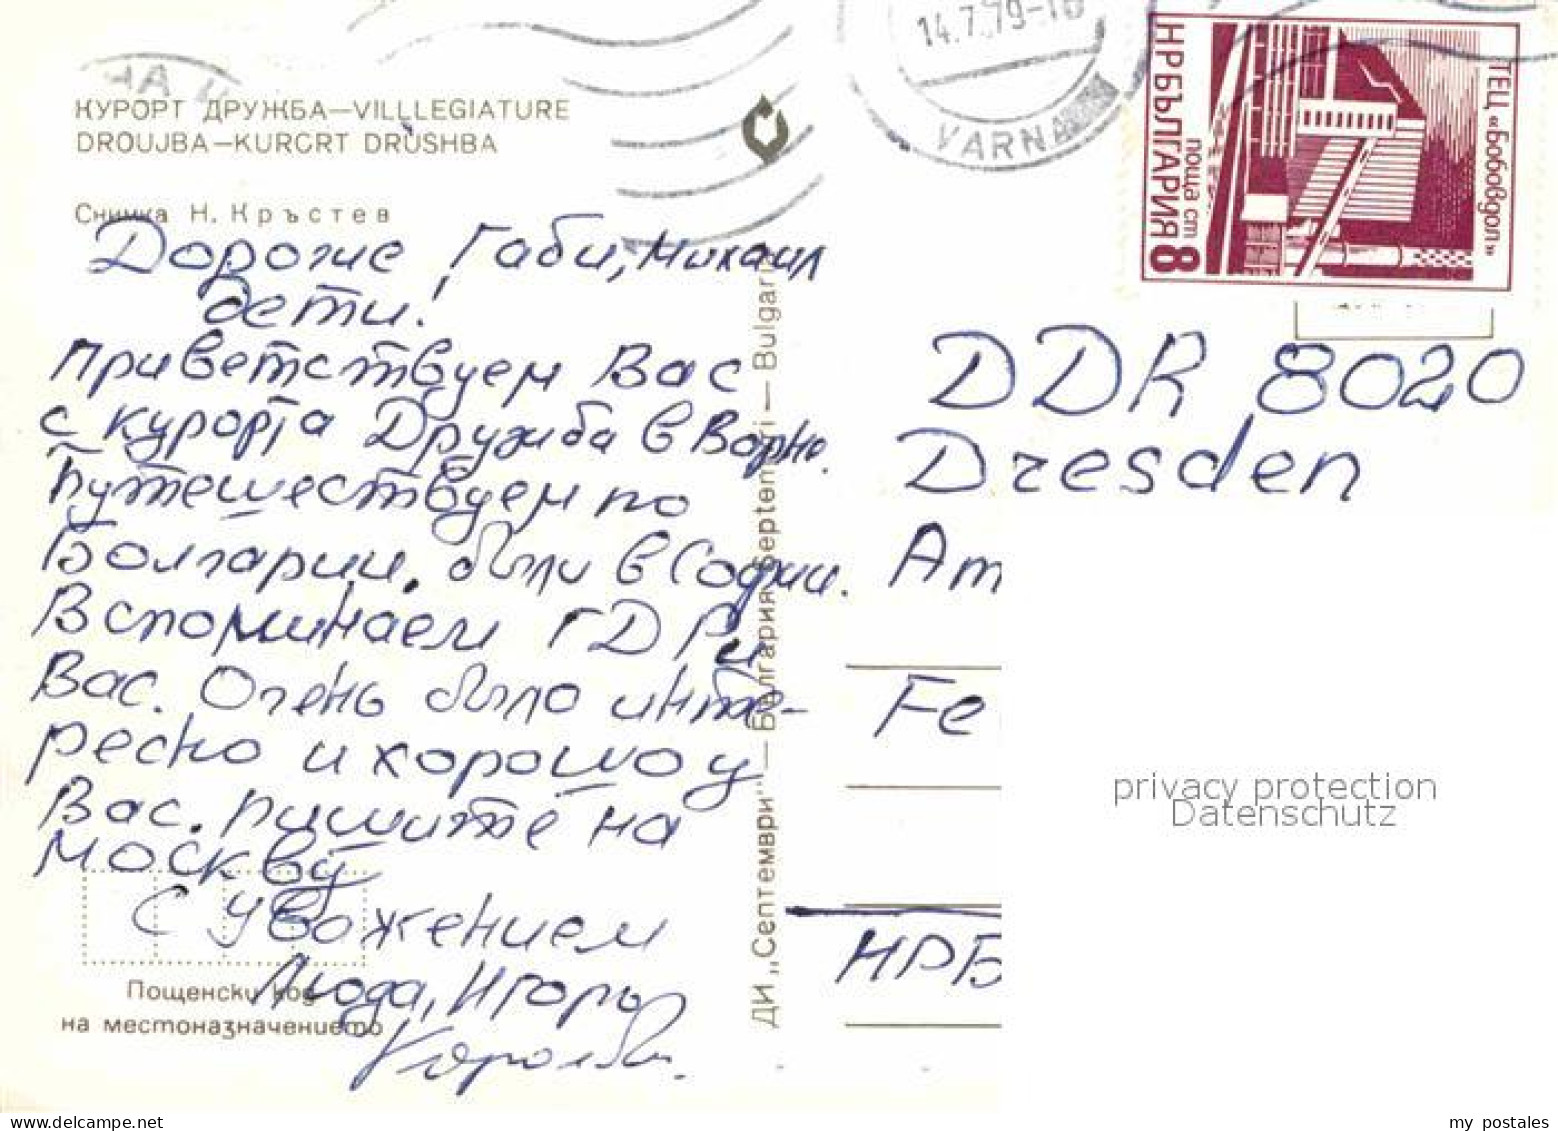 14.7.79-18
VARNA
НРБЪЛГАРИЯ 8
поща ст
ТЕЦ «Бобовдол»
КУРОРТ ДРУЖБА—VILLLEGIATURE
DROUJBA—KURORT DRUSHBA
Снимка Н. Кръстев
Дорогие Габи, Михаил
дети!
Приветствуем Вас
с курорта Дружба в Варне.
Путешествуем по
Болгарии, были в Софии.
Вспоминаем ГДР и
Вас. Очень было инте-
ресно и хорошо у
Вас. Пишите на
Москву
С уважением
Люда, Игорь
Королевы.
Пощенски код
на местоназначението
ДИ „Септември" — България Septemvri — Bulgaria
DDR 8020
Dresden
Am
Fe
НРБ
privacy protection
Datenschutz
my postales